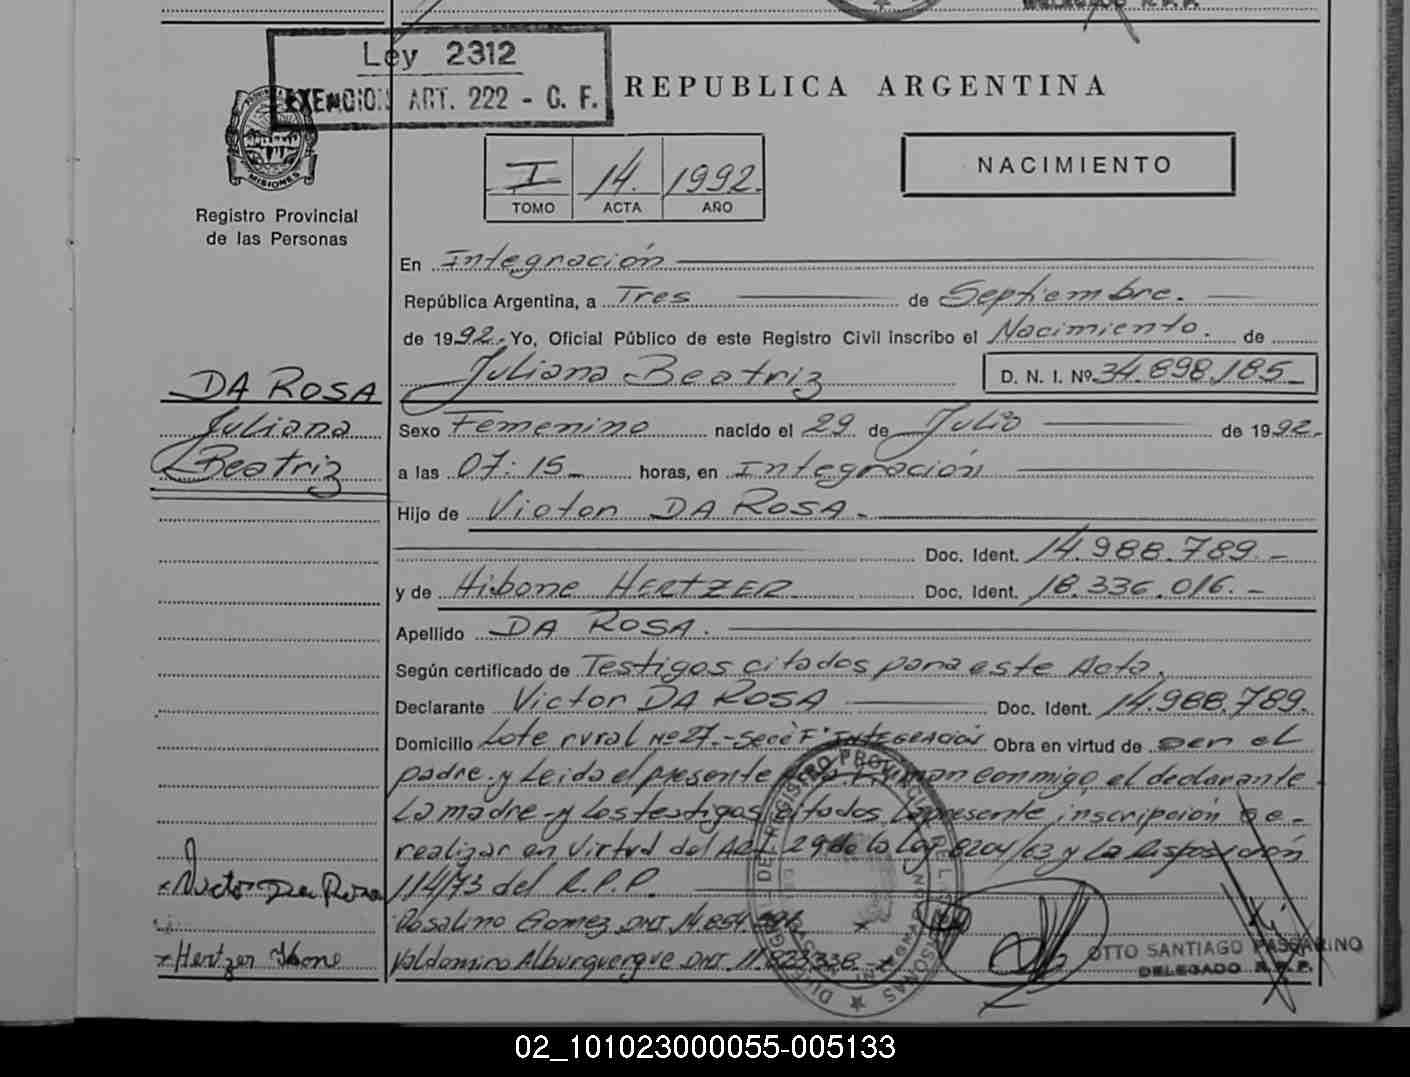 Ley 2312
EXENCION ART. 222 - C. F.
REPUBLICA ARGENTINA
MISIONES
Registro Provincial
de las Personas
I 14. 1992.
TOMO ACTA AÑO
NACIMIENTO
En Integración
República Argentina, a Tres de Septiembre.
de 1992.- Yo, Oficial Público de este Registro Civil inscribo el Nacimiento. de
Juliana Beatriz D. N. I. Nº 34.898.185_
DA ROSA
Juliana
Beatriz
Sexo Femenino nacido el 29 de Julio de 1992.-
a las 07:15_ horas, en Integración
Hijo de Victor DA ROSA.
Doc. Ident. 14.988.789.-
y de Hibone HERTZER Doc. Ident. 18.336.016.-
Apellido DA ROSA.
Según certificado de Testigos citados para este Acta.
Declarante Victor DA ROSA Doc. Ident. 14.988.789.
Domicilio Lote rural Nº 27.- INTEGRACIÓN Obra en virtud de ser el
padre.-y Leida el presente firman conmigo, el declarante
La madre-y Los testigos citados, La presente inscripción se-
realizar en Virtud del Art. 29 de la Ley 8204/63 y La Disposición
114/73 del R.P.P.
Rosalino Gomez DNI 14.854.
Valdomiro Alburquerque DNI 11.823338.-
x Victor Da Rosa
x Hertzer Ibone
OTTO SANTIAGO PASSARINO
DELEGADO R.P.P.
02_101023000055-005133